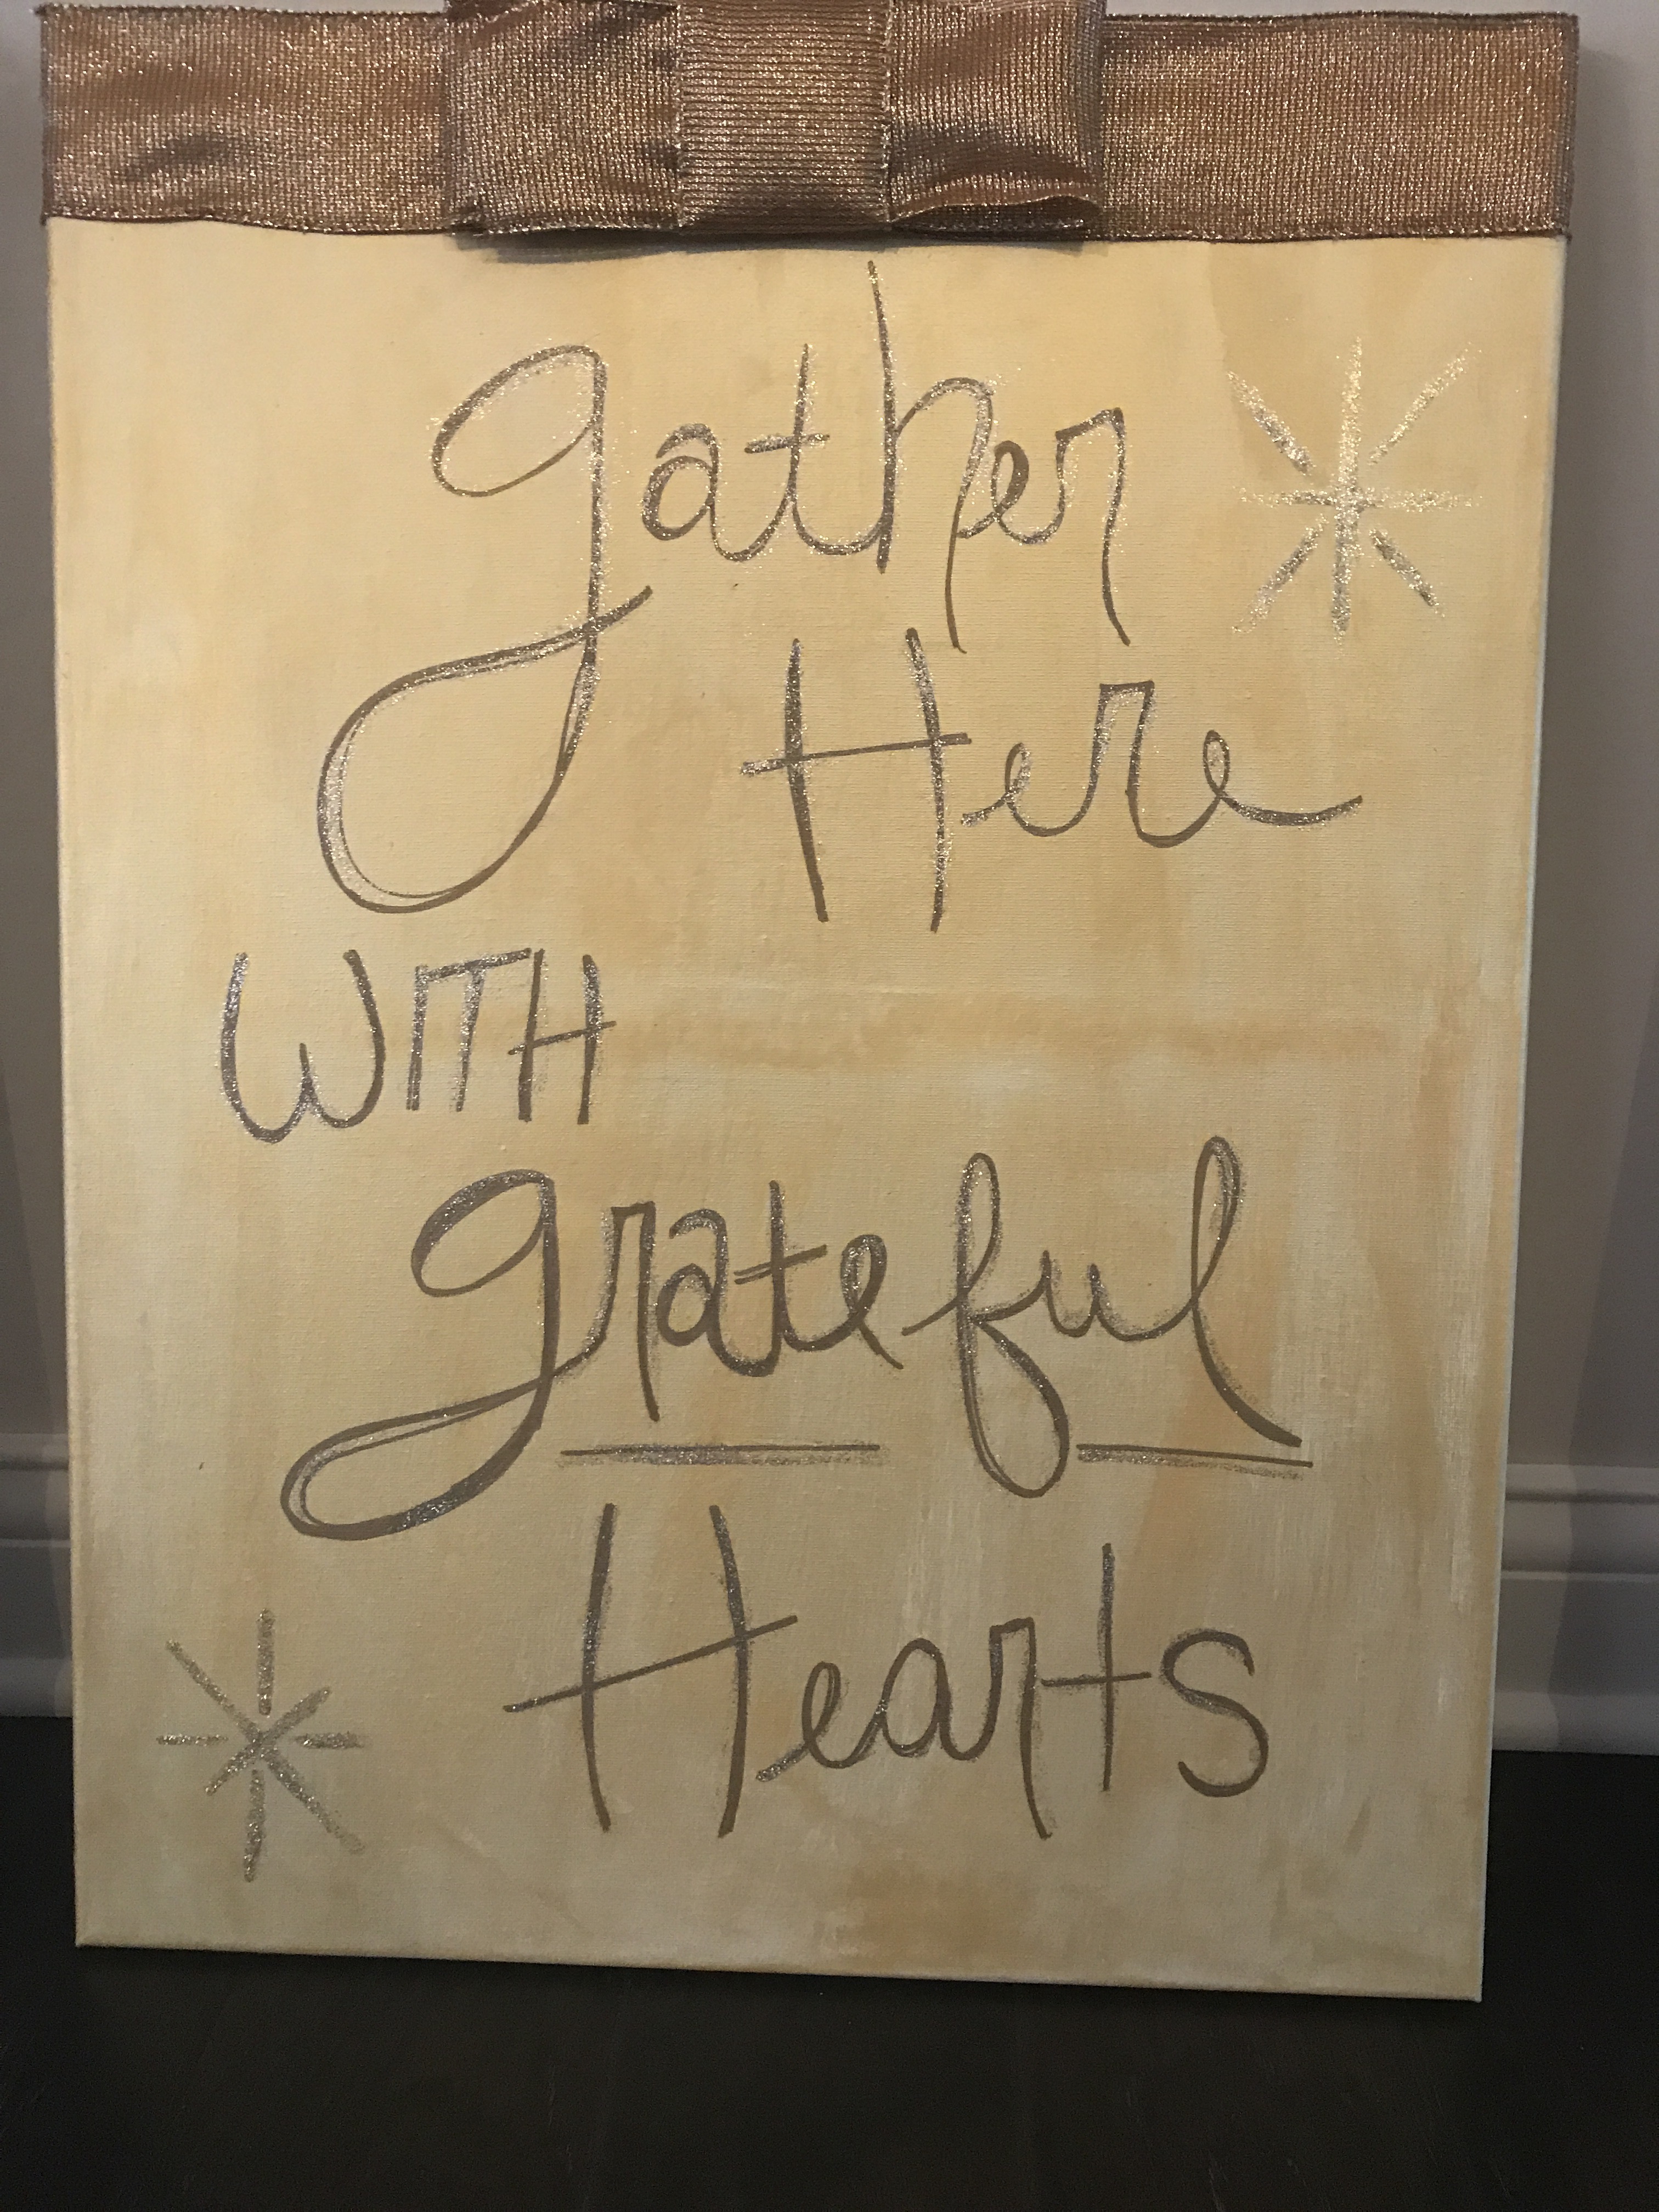 gather
Here
WITH
grateful
Hearts